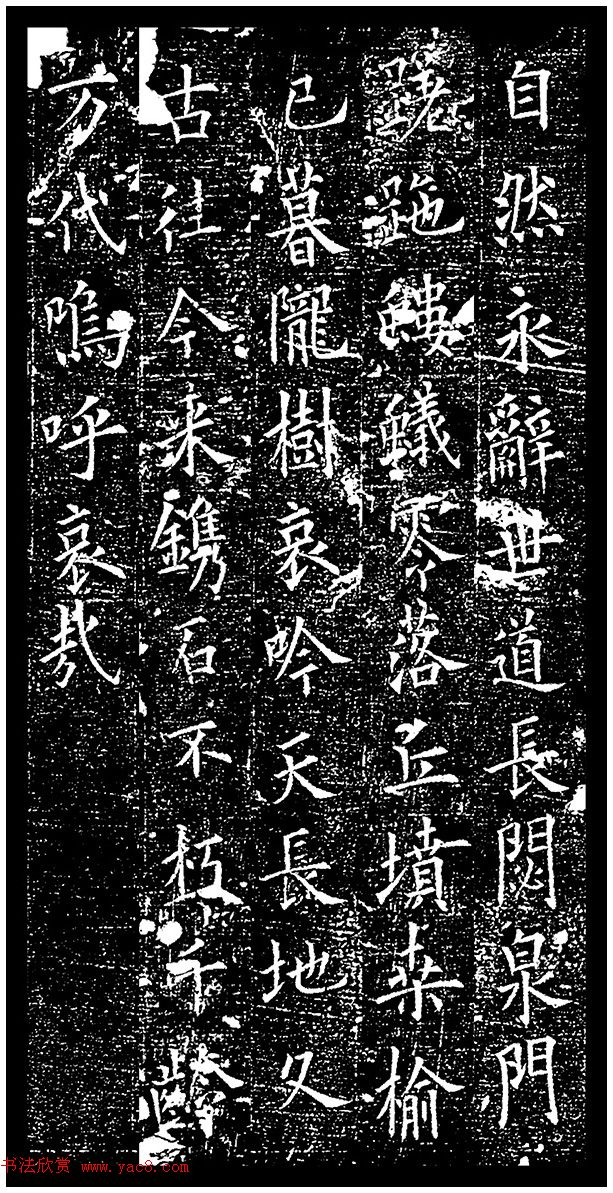 自然永辭世道長閟泉門
蹉跎螻蟻零落丘墳桒榆
已暮隴樹哀吟天長地久
古往今来鐫石不朽千齡
万代嗚呼哀哉
书法欣赏 www.yac8.com